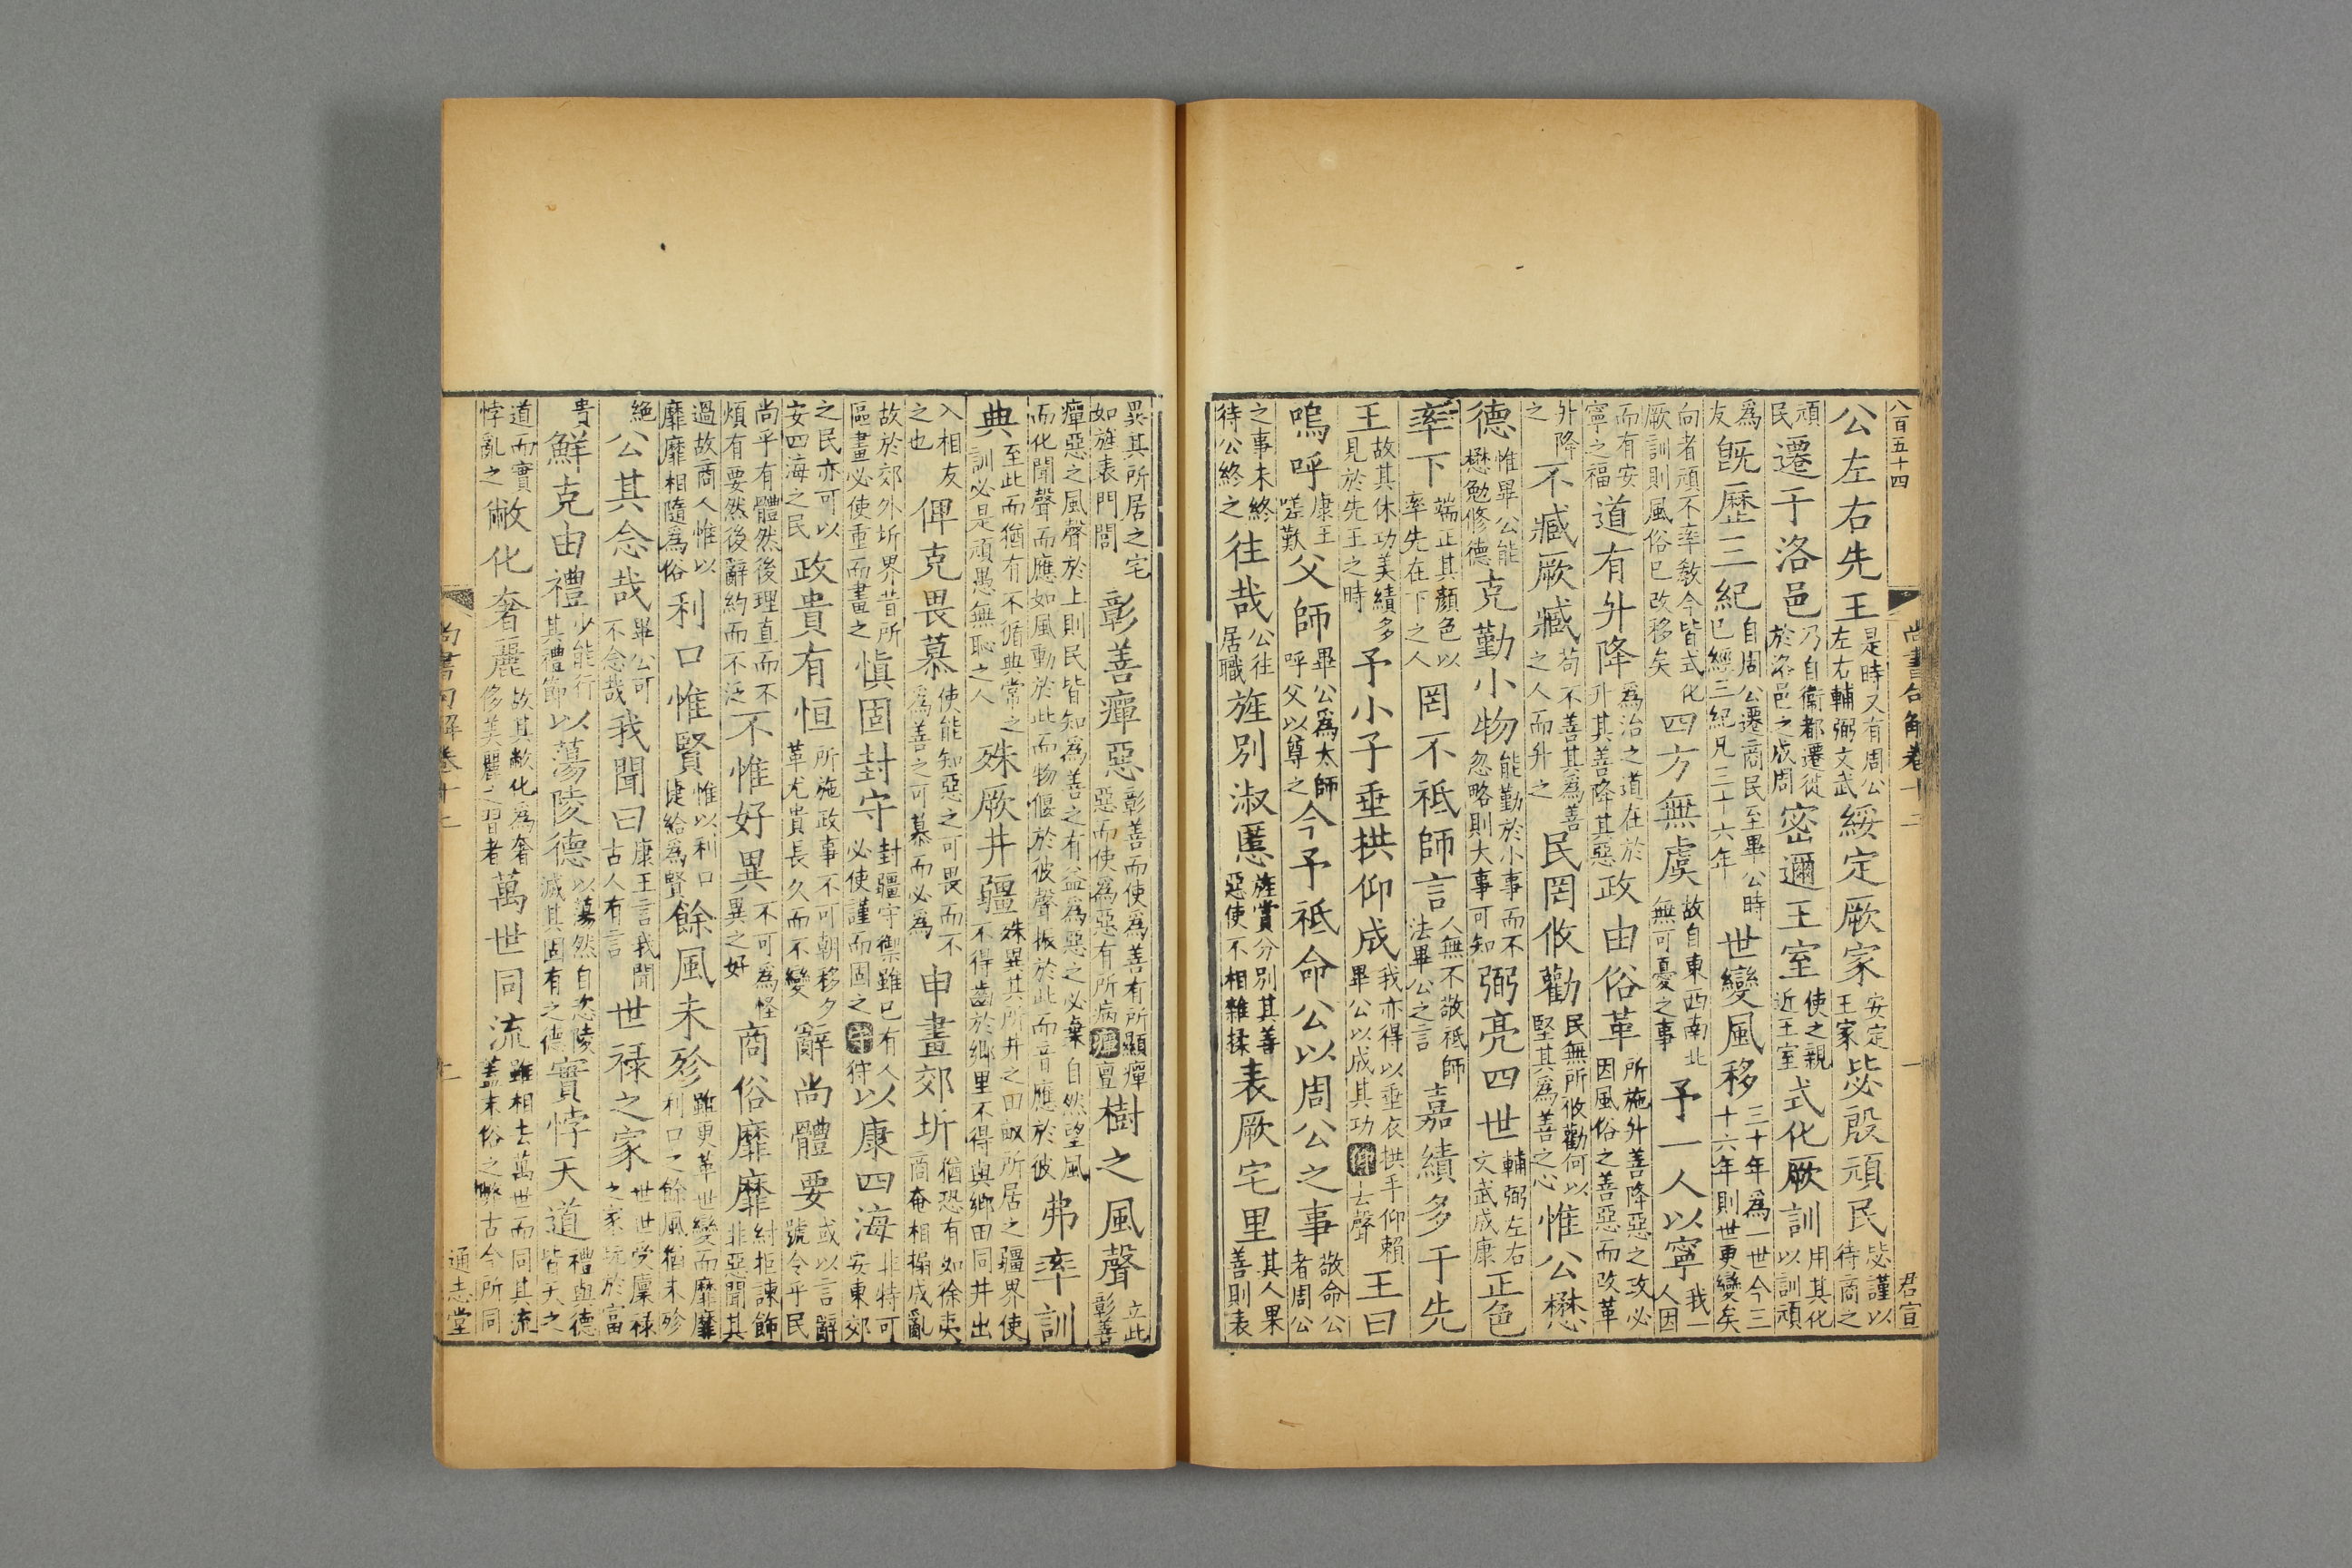 八百五十四 尚書句解卷十二 一 君宣
公左右先王是時又有周公左右輔弼文武綏定厥家安定王家毖殷頑民毖謹以待商之
頑民遷于洛邑乃自衞都遷徙於洛邑之成周密邇王室使之親近王室式化厥訓用其化以訓頑
爲友既歷三紀自周公遷商民至畢公時已經三紀凡三十六年世變風移三十年爲一世今三十六年則世更變矣
向者頑不率敎今皆式化厥訓則風俗已改移矣四方無虞故自東西南北無可憂之事予一人以寧我一人因
而有安寧之福道有升降爲治之道在於升其善降其惡政由俗革所施升善降惡之政必因風俗之善惡而改革
升降之不臧厥臧苟不善其爲善之人而升之民罔攸勸民無所攸勸何以堅其爲善之心惟公懋
德惟畢公能懋勉修德克勤小物能勤於小事而不忽略則大事可知弼亮四世輔弼左右文武成康正色
率下端正其顏色以率先在下之人罔不祗師言人無不敬祗師法畢公之言嘉績多于先
王故其休功美績多見於先王之時予小子垂拱仰成我亦得以垂衣拱手仰賴畢公以成其功仰去聲王曰
嗚呼康王嗟歎父師畢公爲太師呼父以尊之今予祗命公以周公之事敬命公者周公
之事未終待公終之往哉公往居職旌別淑慝旌賞分別其善惡使不相雜揉表厥宅里其人果善則表
異其所居之宅如旌表門閭彰善癉惡彰善而使爲善有所顯癉惡而使爲惡有所病癉亶樹之風聲立此彰善
癉惡之風聲於上則民皆知爲善之有益爲惡之必棄自然望風而化聞聲而應如風動於此而物偃於彼聲振於此而音應於彼弗率訓
典至此而猶有不循典常之訓必是頑愚無恥之人殊厥井疆殊異其所井之田畝所居之疆界使不得齒於鄉里不得與鄉田同井出
入相友之也俾克畏慕使能知惡之可畏而不爲善之可慕而必爲申畫郊圻猶恐有如徐夷商奄相搧成亂
故於郊外圻界昔所區畫必使重而畫之慎固封守封疆守禦雖已有人必使謹而固之守狩以康四海非特可安東郊
之民亦可以安四海之民政貴有恒所施政事不可朝移夕革尤貴長久而不變辭尚體要或以言辭號令乎民
尚乎有體然後理直而不煩有要然後辭約而不泛不惟好異不可爲怪異之好商俗靡靡紂拒諫飾非惡聞其
過故商人惟以靡靡相隨爲俗利口惟賢惟以利口捷給爲賢餘風未殄雖更革世變而靡靡利口之餘風猶未殄
絕公其念哉畢公可不念哉我聞曰康王言我聞古人有言世祿之家世世受廩祿之家逸於富
貴鮮克由禮少能行其禮節以蕩陵德以蕩然自恣陵滅其固有之德實悖天道禮與德皆天之
道而實悖亂之敝化奢麗故其敝化爲奢侈美麗之習者萬世同流雖相去萬世而同其流蓋末俗之弊古今所同
尚書句解卷十二 二 通志堂